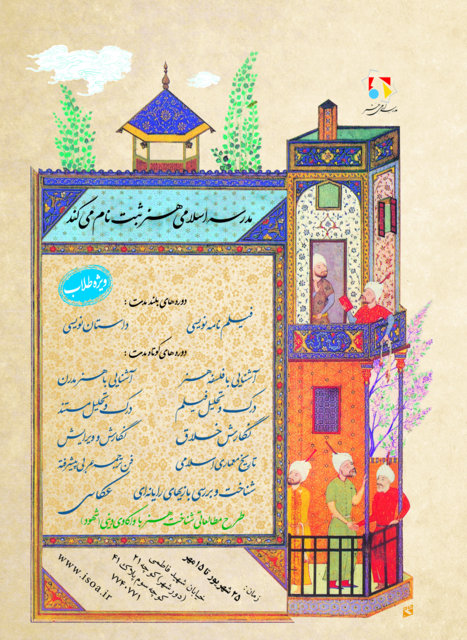 مدرسه اسلامی هنر
مدرسه اسلامی هنر ثبت نام می کند
ویژه طلاب
دوره های بلند مدت :
فیلم نامه نویسی داستان نویسی
دوره های کوتاه مدت :
آشنایی با فلسفه هنر آشنایی با هنر مدرن
درک و تحلیل فیلم درک و تحلیل مستند
نگارش خلاق نگارش و ویرایش
تاریخ معماری اسلامی فن ترجمه عربی پیشرفته
شناخت و بررسی بازیهای رایانه ای عکاسی
طرح مطالعاتی شناخت هنر با واکاوی دینی (شهود)
زمان: ۲۵ شهریور تا ۱۵ مهر
خیابان شهید فاطمی
(دورشهر) کوچه ۲۱
کوچه سوم پلاک ۴۱
۷۷۴۰۷۷۱
www.isoa.ir